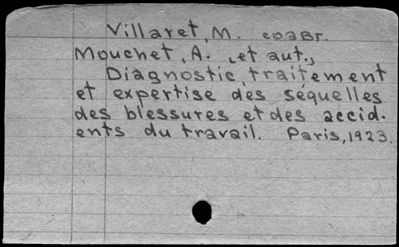 Villaret, M. coaBr.
Mouchet, A. , et aut.,
Diagnostic traitement
et expertise des séquelles
des blessures et des accid-
ents du travail. Paris, 1923.